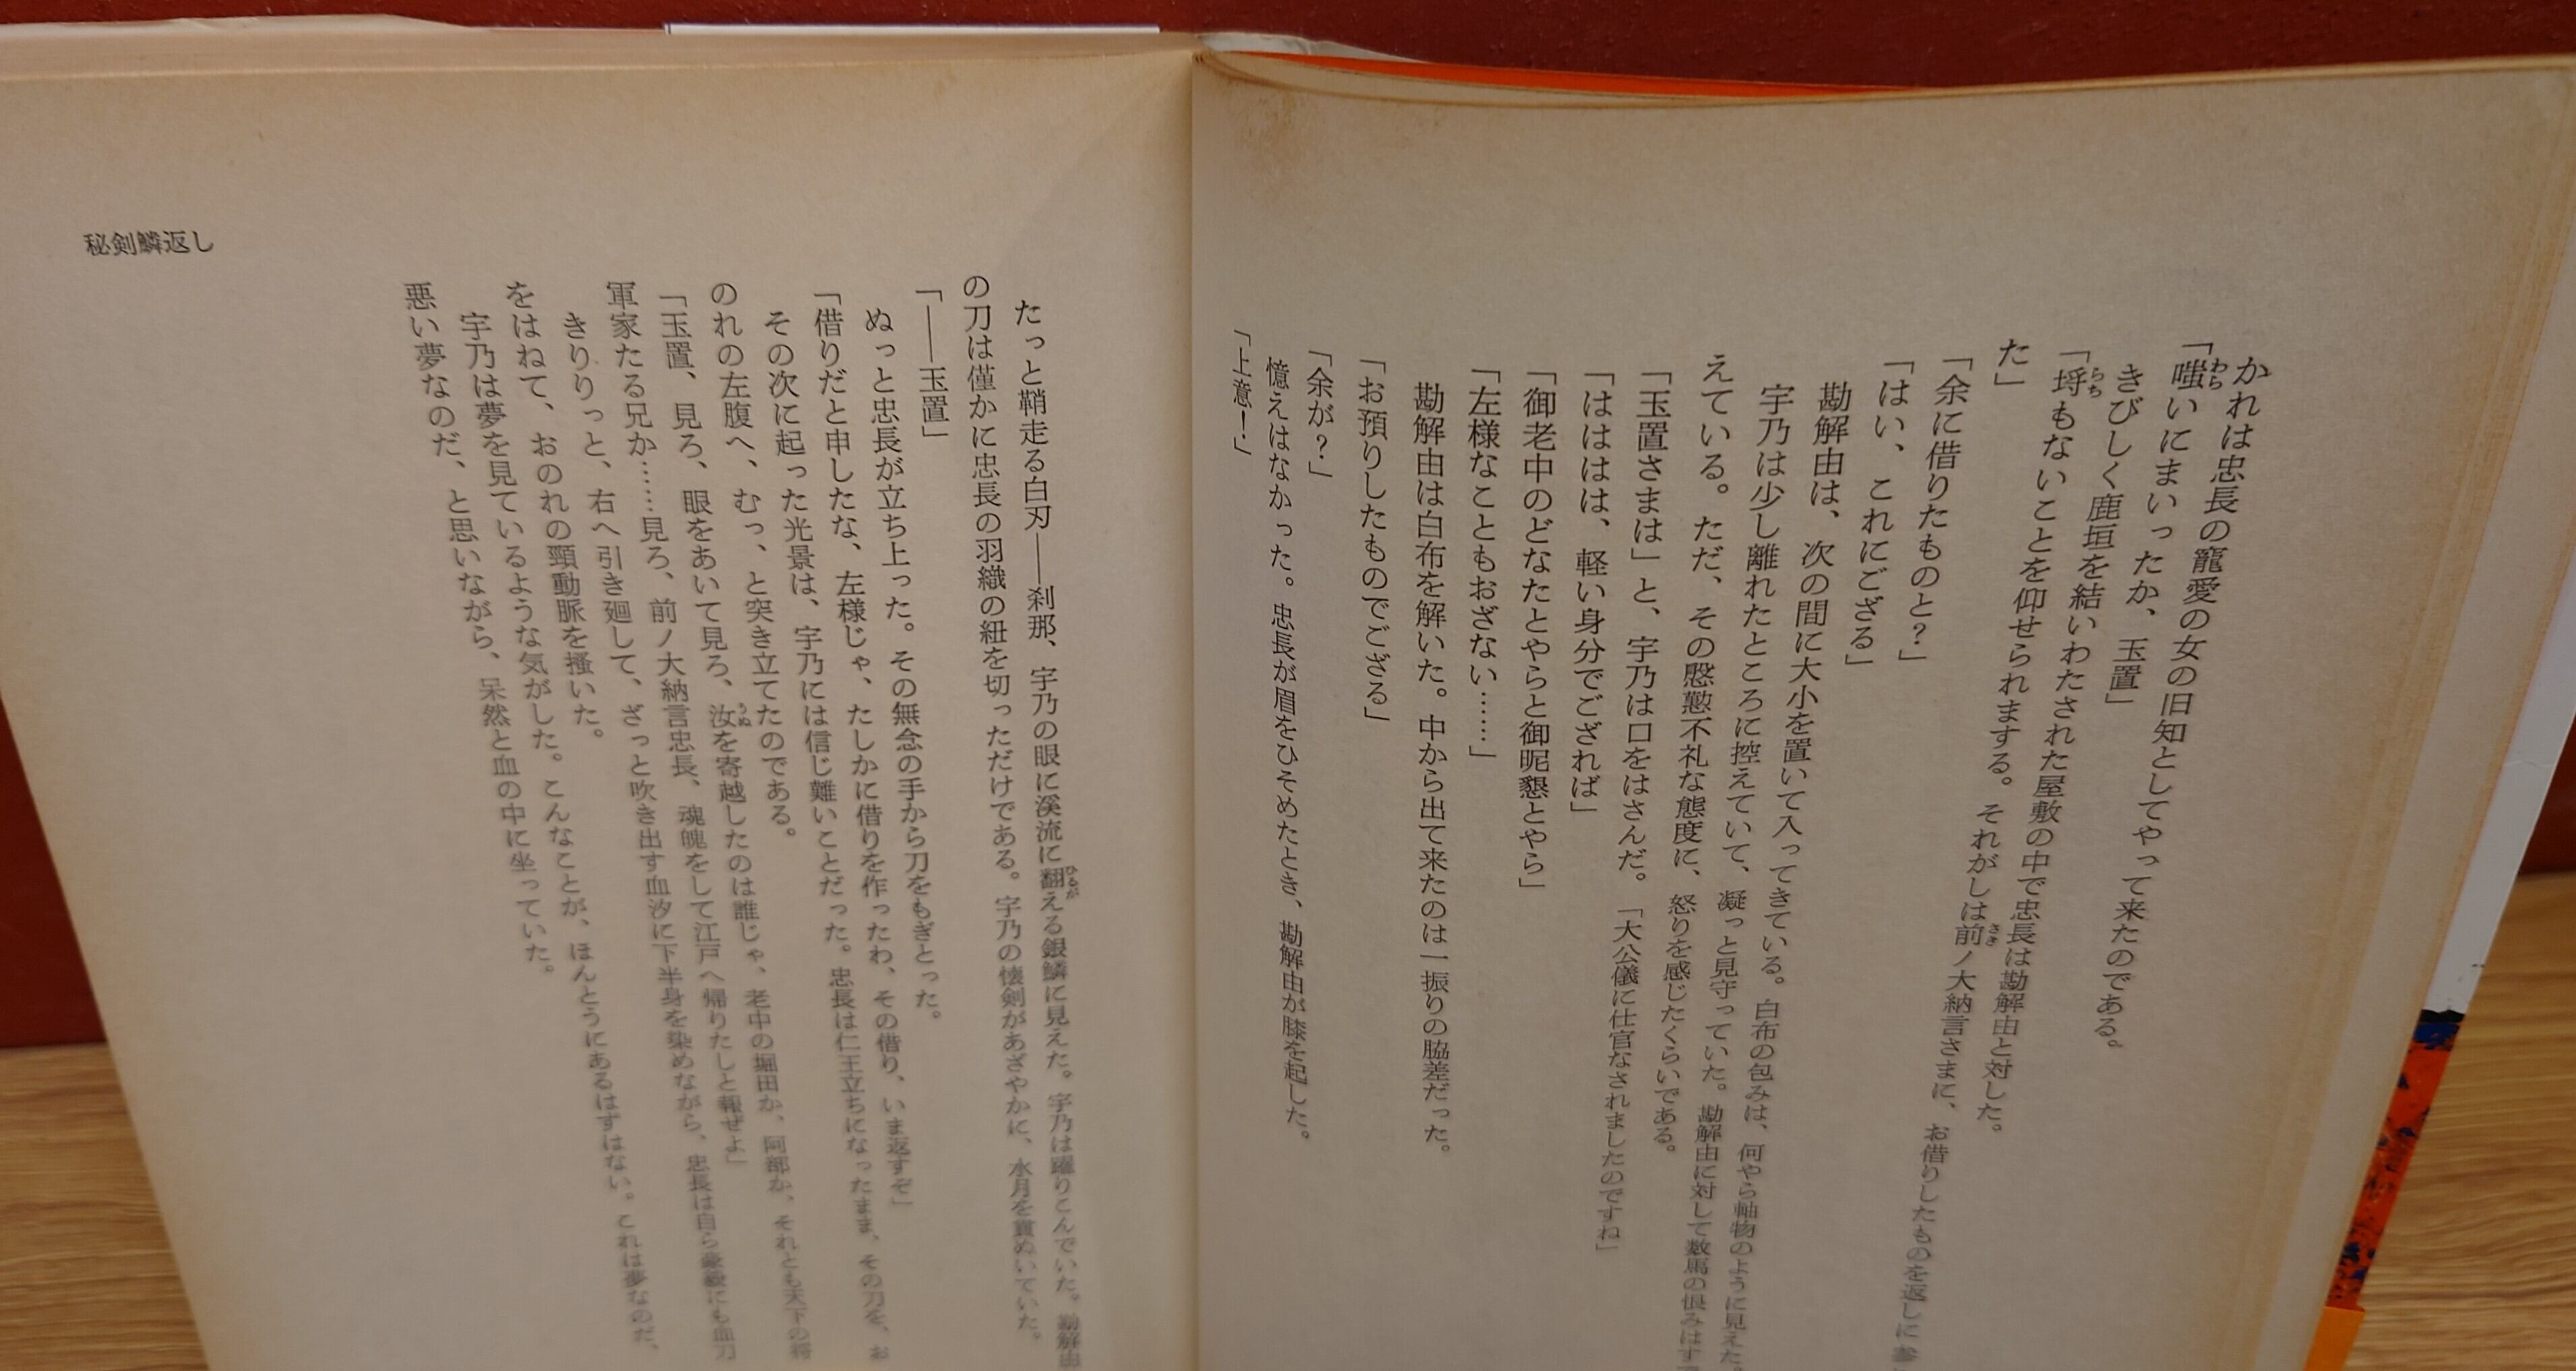 かれは忠長の寵愛の女の旧知としてやって来たのである。
「嗤いにまいったか、玉置」
きびしく鹿垣を結いわたされた屋敷の中で忠長は勘解由と対した。
「埒もないことを仰せられまする。それがしは前ノ大納言さまに、お借りしたものを返しに参
た」
「余に借りたものと？」
「はい、これにござる」
勘解由は、次の間に大小を置いて入ってきている。白布の包みは、何やら軸物のように見えた。
宇乃は少し離れたところに控えていて、凝っと見守っていた。勘解由に対して数馬の恨みはす
えている。ただ、その慇懃不礼な態度に、怒りを感じたくらいである。
「玉置さまは」と、宇乃は口をはさんだ。「大公儀に仕官なされましたのですね」
「ははは、軽い身分でござれば」
「御老中のどなたとやらと御昵懇とやら」
「左様なこともおざない……」
勘解由は白布を解いた。中から出て来たのは一振りの脇差だった。
「お預りしたものでござる」
「余が？」
憶えはなかった。忠長が眉をひそめたとき、勘解由が膝を起した。
「上意！」
たっと鞘走る白刃――刹那、宇乃の眼に渓流に翻える銀鱗に見えた。宇乃は躍りこんでいた。勘解由
の刀は僅かに忠長の羽織の紐を切っただけである。宇乃の懐剣があざやかに、水月を貫ぬいていた。
「――玉置」
ぬっと忠長が立ち上った。その無念の手から刀をもぎとった。
「借りだと申したな、左様じゃ、たしかに借りを作ったわ、その借り、いま返すぞ」
その次に起った光景は、宇乃には信じ難いことだった。忠長は仁王立ちになったまま、その刀を、お
のれの左腹へ、むっ、と突き立てたのである。
「玉置、見ろ、眼をあいて見ろ、汝を寄越したのは誰じゃ、老中の堀田か、阿部か、それとも天下の将
軍家たる兄か……見ろ、前ノ大納言忠長、魂魄をして江戸へ帰りたしと報ぜよ」
きりりっと、右へ引き廻して、ざっと吹き出す血汐に下半身を染めながら、忠長は自ら豪毅にも血刀
をはねて、おのれの頸動脈を掻いた。
宇乃は夢を見ているような気がした。こんなことが、ほんとうにあるはずはない。これは夢なのだ、
悪い夢なのだ、と思いながら、呆然と血の中に坐っていた。
秘剣鱗返し